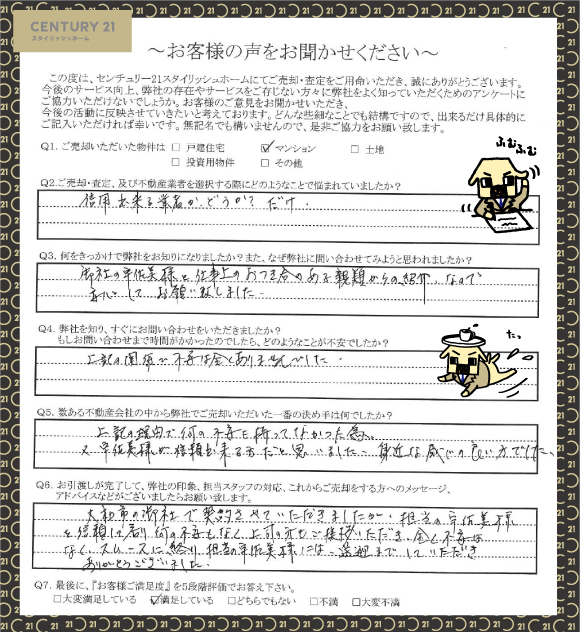 CENTURY 21
スタイリッシュホーム
～お客様の声をお聞かせください～
この度は、センチュリー21スタイリッシュホームにてご売却・査定をご用命いただき、誠にありがとうございます。
今後のサービス向上、弊社の存在やサービスをご存じない方々に弊社をよく知っていただくためのアンケートに
ご協力いただけないでしょうか。お客様のご意見をお聞かせいただき、
今後の活動に反映させていきたいと考えております。どんな些細なことでも結構ですので、出来るだけ具体的に
ご記入いただければ幸いです。無記名でも構いませんので、是非ご協力をお願い致します。
Q1. ご売却いただいた物件は □ 戸建住宅 ☑ マンション □ 土地
□ 投資用物件 □ その他
ふむふむ
Q2.ご売却・査定、及び不動産業者を選択する際にどのようなことで悩まれていましたか？
信用出来る業者かどうか？だけ.
Q3. 何をきっかけで弊社をお知りになりましたか？また、なぜ弊社に問い合わせてみようと思われましたか？
御社の宇佐美様と仕事上のおつき合のある親類からの紹介.なので
安心してお願い致しました.
Q4. 弊社を知り、すぐにお問い合わせをいただきましたか？
もしお問い合わせまで時間がかかったのでしたら、どのようなことが不安でしたか？
たっ
上記の関係で不安は全くありませんでした.
Q5. 数ある不動産会社の中から弊社でご売却いただいた一番の決め手は何でしたか？
上記の理由で何の不安も持っていなかった為。
又、宇佐美様が信頼出来る方だと思いました. 身近な感じの良い方でした、
Q6. お引渡しが完了して、弊社の印象、担当スタッフの対応、これからご売却をする方へのメッセージ、
アドバイスなどがございましたらお願い致します。
大和市の御社で契約させていただきましたが.担当の宇佐美様
を信頼して居り何の不安もなく上司の方もご挨拶いただき、全く不安は
なく、スムースに終り、担当の宇佐美様には、送迎までしていただき
ありがとうございました.
Q7. 最後に、『お客様ご満足度』を5段階評価でお答え下さい。
□大変満足している ☑満足している □どちらでもない □不満 □大変不満